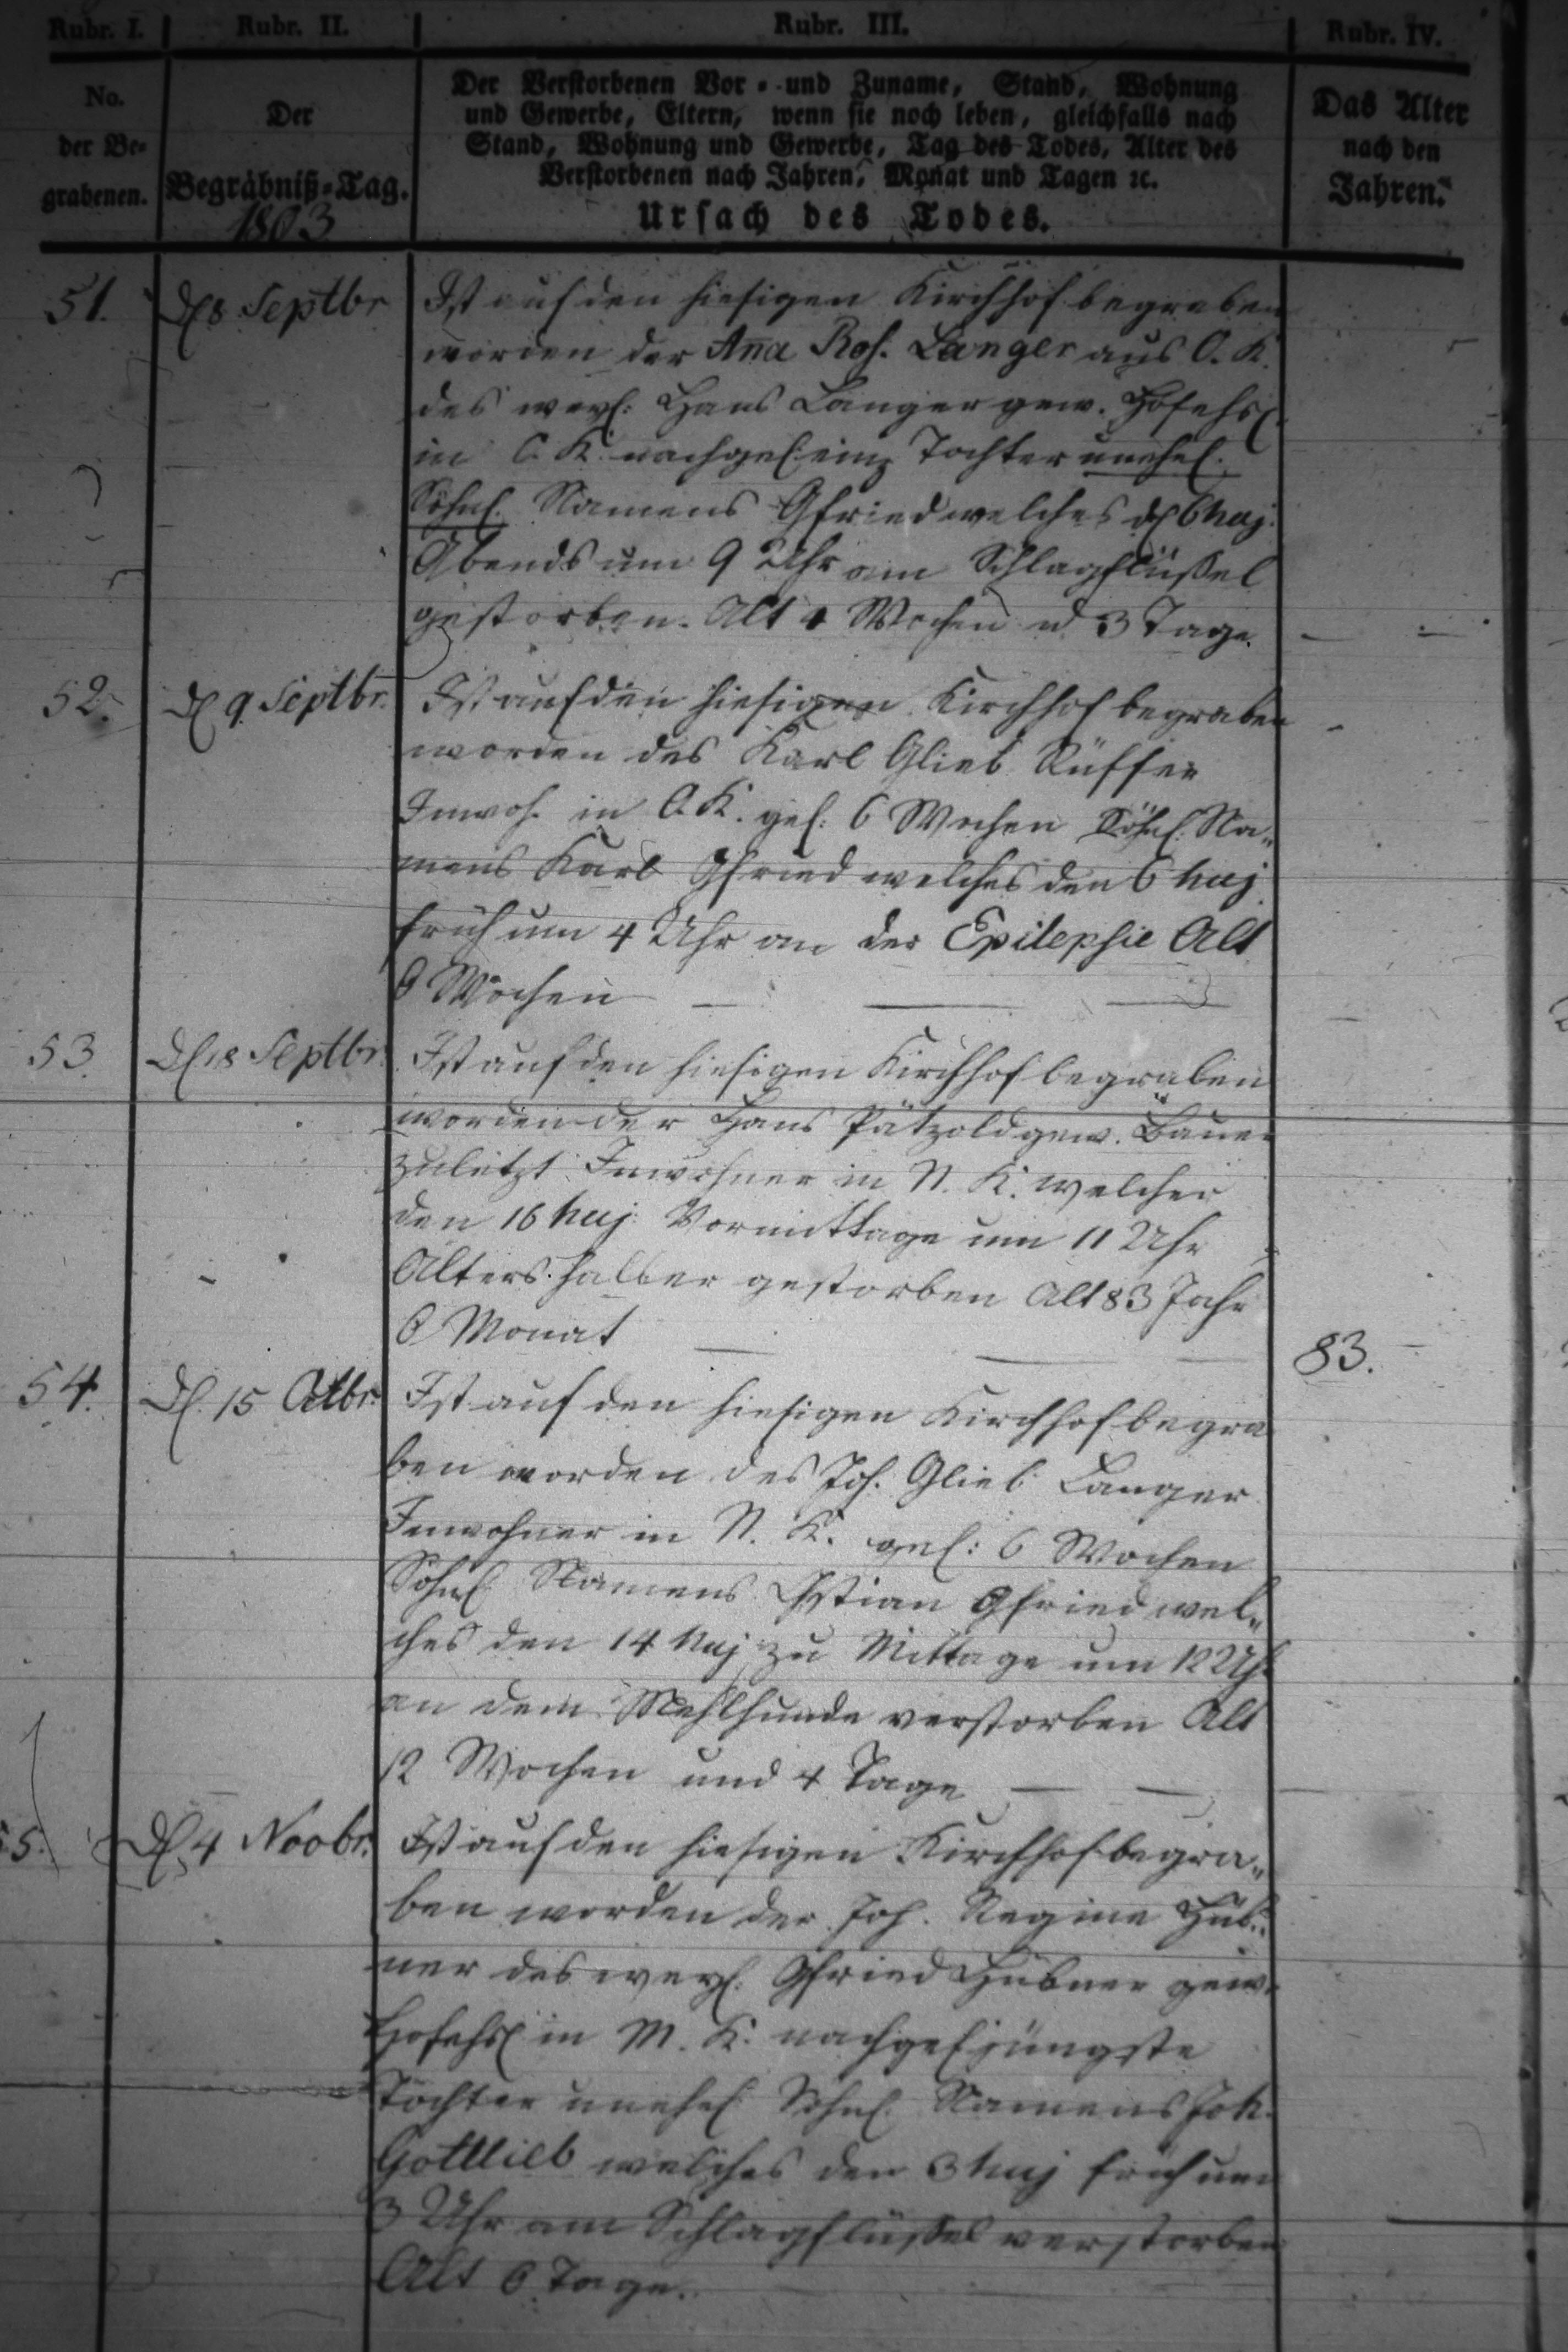 Rubr. I. Rubr. II. Rubr. III. Rubr. IV.
No. der Be-grabenen.
Der Begräbniß-Tag.
1803
Der Verstorbenen Vor- und Zuname, Stand, Wohnung
und Gewerbe, Eltern, wenn sie noch leben, gleichfalls nach
Stand, Wohnung und Gewerbe, Tag des Todes, Alter des
Verstorbenen nach Jahren, Monat und Tagen ꝛc.
Ursach des Todes.
Das Alter
nach den
Jahren.
51. d 8 Septbr Ist auf den hiesigen Kirchhof begraben
worden der Aña Ros. Langer aus O. K.
des weyl: Hans Langer gew.
in O. K. nachgel: Tochter unehel.
Söhnl. Namens Gfried welches d 6 huj.
Abends um 9 Uhr am Schlagflüßel
gestorben. Alt 4 Wochen u 3 Tage.
52. d 9. Septbr. Ist auf den hiesigen Kirchhof begraben
worden des Karl Glieb Rüffer
Inwoh. in O. K. gel: 6 Wochen Söhnl. Na„
mens Karl Gfried welches den 6 huj
früh um 4 Uhr an der Epilepsie Alt
6 Wochen
53. d 18 Septbr. Ist auf den hiesigen Kirchhof begraben
worden der Hans Pätzold gew. Bauer
zuletzt Inwohner in N. K. welcher
den 16 huj: Vormittage um 11 Uhr
Alters halber gestorben Alt 83 Jahr
6 Monat
83.
54. d. 15 Octbr. Ist auf den hiesigen Kirchhof begra
ben worden des Joh. Glieb Langer
Inwohner in N. K. gel: 6 Wochen
Söhnl. Namens Gfried wel„
ches den 14 huj zu Mittage um 12 Uhr
an dem verstorben Alt
12 Wochen und 4 Tage
55. d 4 Novbr. Ist auf den hiesigen Kirchhof begra„
ben worden der Joh. Regine Hüb„
ner des weyl. Gfried Hübner gew.
in M. K. nachgel jüngste
Tochter unehel Söhnl. Namens Joh.
Gottlieb welches den 3 huj früh um
3 Uhr am Schlagflüßel verstorben
Alt 6 Tage.